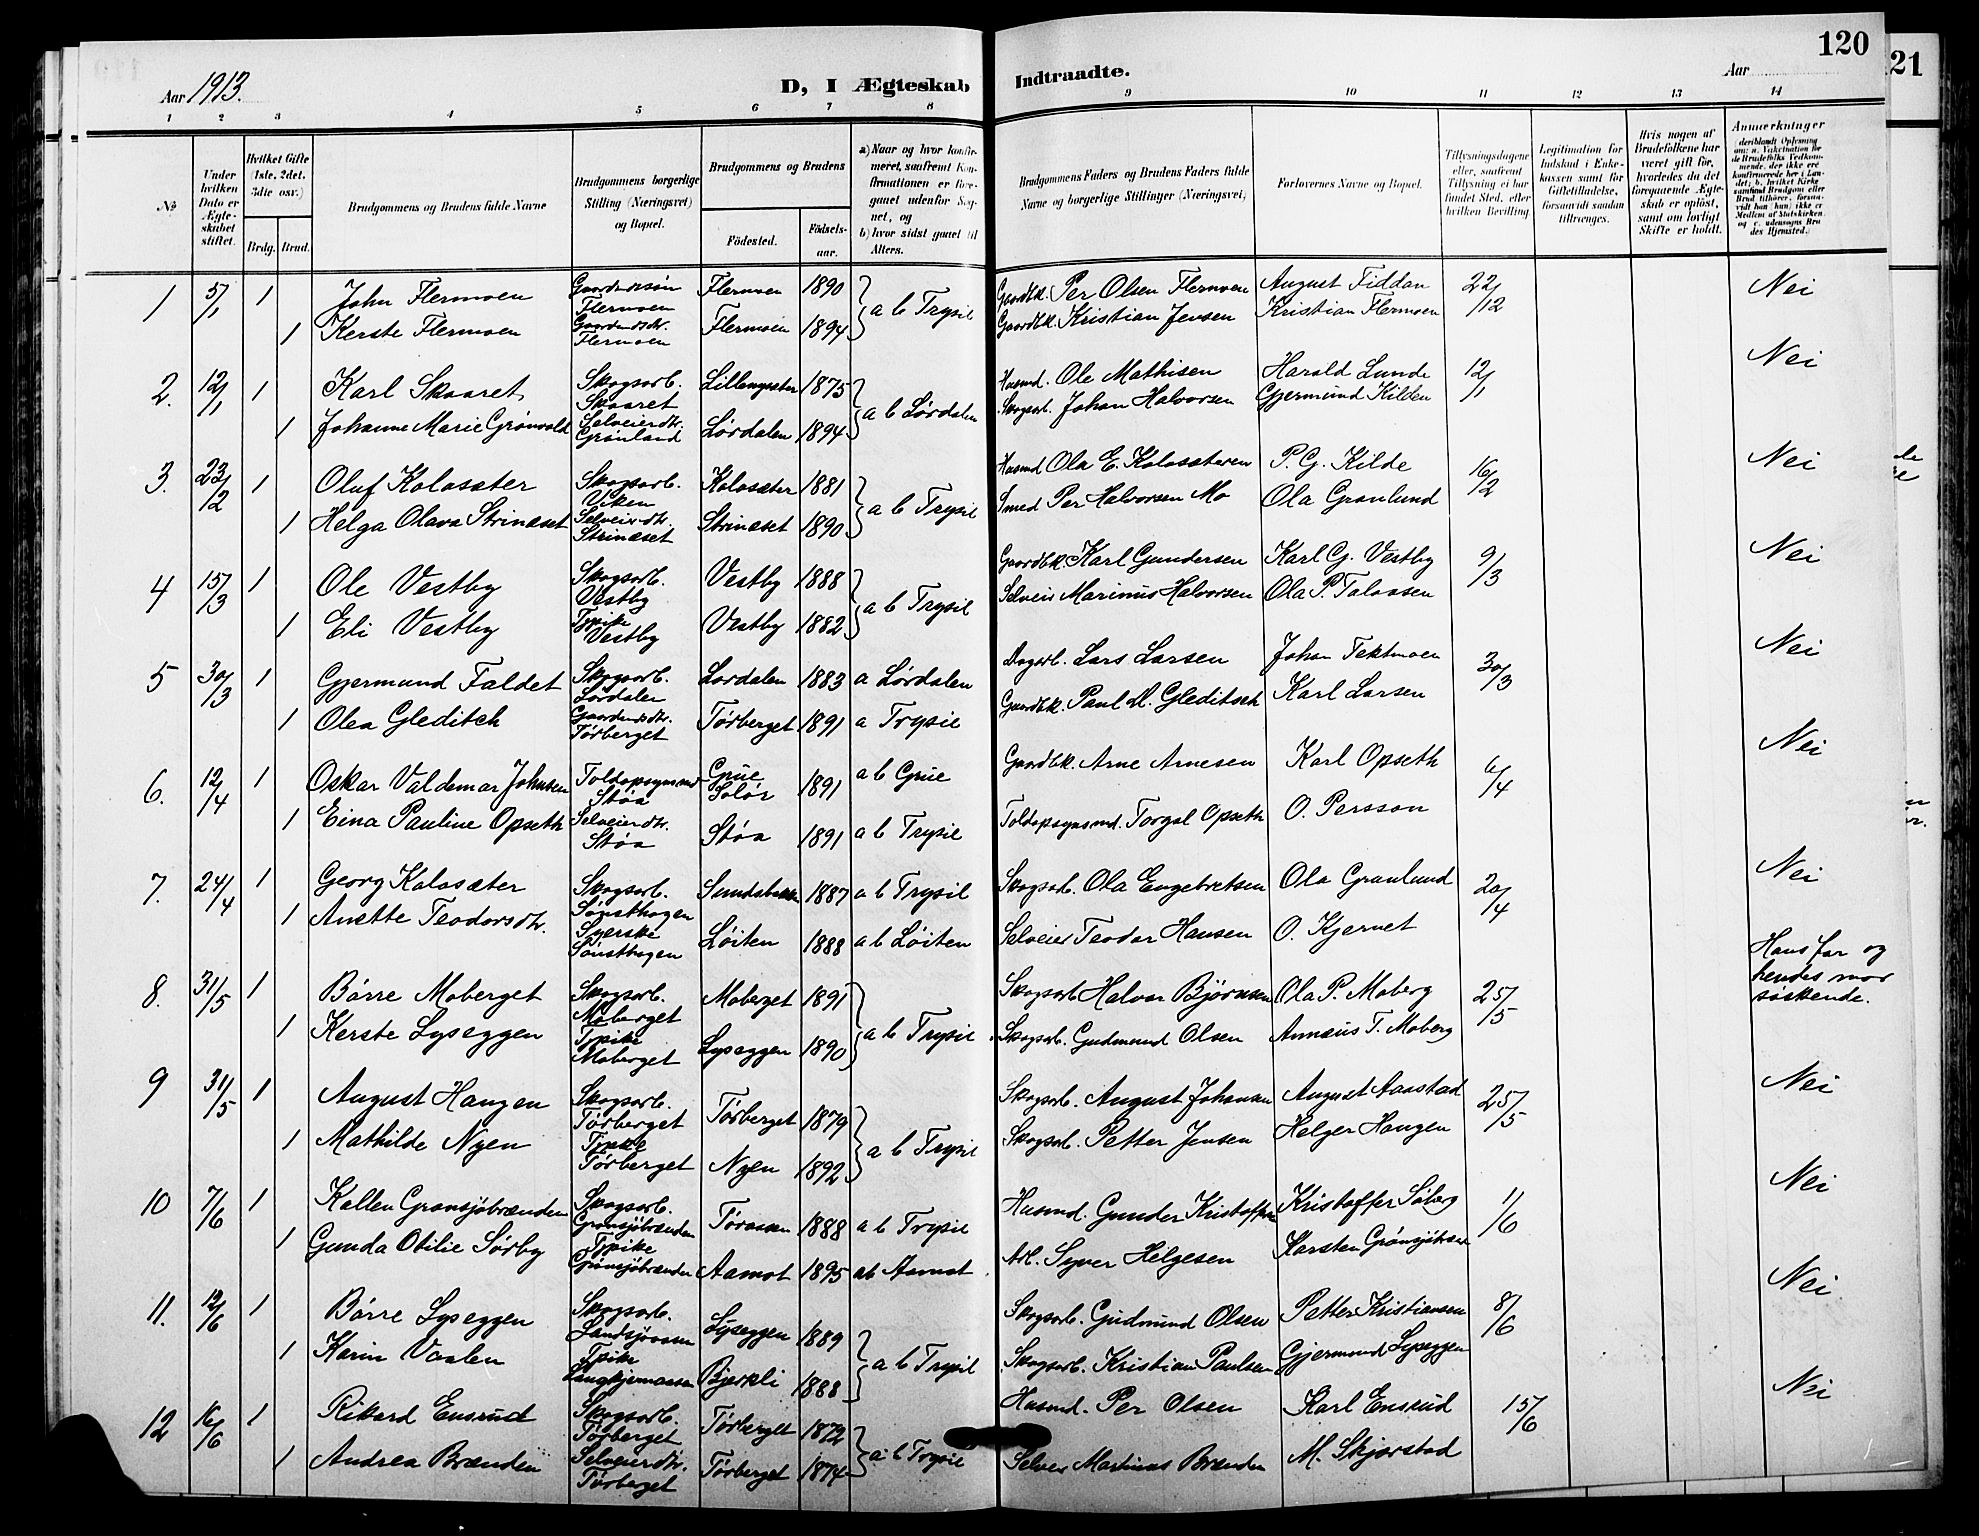 120
21
Aar 1913.
D, I Ægteskab Indtraadte.
Aar
1 2 3 4 5 6 7 8 9 10 11 12 13 14
No
Under hvilken Dato er Ægteskabet stiftet.
Hvilket Gifte (1ste, 2det, 3die osv.)
Brdg. Brud.
Brudgommens og Brudens fulde Navne
Brudgommens borgerlige Stilling (Næringsvei) og Bopæl.
Brudgommens og Brudens
Fødested. Fødselsaar.
a) Naar og hvor konfirmeret, saafremt Konfirmationen er foregaaet udenfor Sognet, og
b) hvor sidst gaaet til Alters.
Brudgommens Faders og Brudens Faders fulde Navne og borgerlige Stillinger (Næringsvei)
Forlovernes Navne og Bopæl.
Tillysningsdagene eller, saafremt Tillysning ei har fundet Sted, efter hvilken Bevilling.
Legitimation for Indskud i Enkekassen samt for Giftetilladelse, forsaavidt saadan tiltrænges.
Hvis nogen af Brudefolkene har været gift før, hvorledes da det foregaaende Ægteskab er opløst, samt om lovligt Skifte er holdt.
Anmærkninger
1 5/1 1 John Flermoen Gaardmdssøn Flermoen Flermoen 1890 a b Trysil Gaardbk. Per Olsen Flermoen August Fiddan 22/12 Nei
1 Kerste Flermoen Gaardmdsdtr. Flermoen Flermoen 1894 Gaardbk. Kristian Jensen Kristian Flermoen
2. 12/1 1 Karl Skaaret Skogsarb. Skaaret Lillengsæter 1875 a b Lørdalen Husmd. Ole Mathisen Harald Lunde 12/1 Nei
1 Johanne Marie Grønvold Selveierdtr. Grønland Lørdalen 1894 Skogsarb. Johan Halvorsen Gjermund Kilden
3. 23/2 1 Oluf Kolosæter Skogsarb. Viken Kolosæter 1881 a b Trysil Husmd Ola E. Kolosæteren P. G. Kilde 16/2 Nei
1 Helga Olava Strinæset Selveierdtr. Strinæset Strinæset 1890 Smed Per Halvorsen Mo Ola Granlund
4 15/3 1 Ole Vestby Skogsarb. Vestby Vestby 1888 a b Trysil Gaardbk. Karl Gundersen Karl G. Vestby 9/3 Nei
1 Eli Vestby Tpike Vestby Vestby 1882 Selveier Marinus Halvorsen Ola P. Talaasen
5 30/3 1 Gjermund Faldet Skogsarb. Lørdalen Lørdalen 1883 a Lørdalen Skogsarb. Lars Larsen Johan Tektmoen 30/3 Nei
1 Olea Gleditch Gaardmdsdtr. Tørberget Tørberget 1891 a Trysil Gaardbk. Paul M. Gleditsch Karl Larsen
6. 12/4 1 Oskar Valdemar Johnsen Toldopsynsmd Støa Grue Solør 1891 a b Grue Gaardbk. Arne Arnesen Karl Opseth 6/4 Nei
1 Eina Pauline Opseth Selveierdtr. Støa Støa 1891 a b Trysil Toldopsynsmd. Torgal Opseth O. Persson
7. 24/4 1 Georg Kolosæter Skogsarb. Sønsthagen 1887 a b Trysil Skogsarb. Ola Engebretsen Ola Granlund 20/4 Nei
1 Anette Teodorsdtr. Syerske Sønsthagen Løiten 1888 a b Løiten Selveier Teodor Hansen O. Kjernet
8. 31/5 1 Børre Moberget Skogsarb. Moberget Moberget 1891 a b Trysil Skogsarb Halvor Bjørnsen Ola P. Moberg 25/5 Hans far og hendes mor søskende.
1 Kerste Lyseggen Tpike Moberget Lyseggen 1890 Skogsarb. Gudmund Olsen Annæus T. Moberg
9 31/5 1 August Haugen Skogsarb. Tørberget Tørberget 1879 a b Trysil Skogsarb. August Johansen August Aanstad 25/5 Nei
1 Mathilde Nyen Tpike Tørberget Nyen 1892 Skogsarb. Petter Jensen Helger Haugen
10 7/6 1 Kallen Grønsjøbrænden Skogsarb. Grønsjøbrænden Töraasen 1888 a b Trysil Husmd. Gunder Kristoffersen Kristoffer Søberg 1/6 Nei
1 Gunda Otilie Sørby Tpike Grønsjøbrænden Aamot 1895 a b Aamot Arb. Syver Helgesen Karsten
11. 12/6 1 Børre Lyseggen Skogsarb. Landsjøaasen Lyseggen 1889 a b Trysil Skogsarb. Gudmund Olsen Petter Kristiansen 8/6 Nei
1 Karin Vaalen Tpike Bjerkli 1888 Skogsarb. Kristian Paulsen Gjermund Lyseggen
12 16/6 1 Rikard Ensrud Skogsarb. Tørberget Tørberget 1872 a b Trysil Husmd. Per Olsen Karl Ensrud 15/6 Nei
1 Andrea Brænden Selveierdtr. Tørberget Tørberget 1874 Selveier Martinus Brænden M. Skjørstad